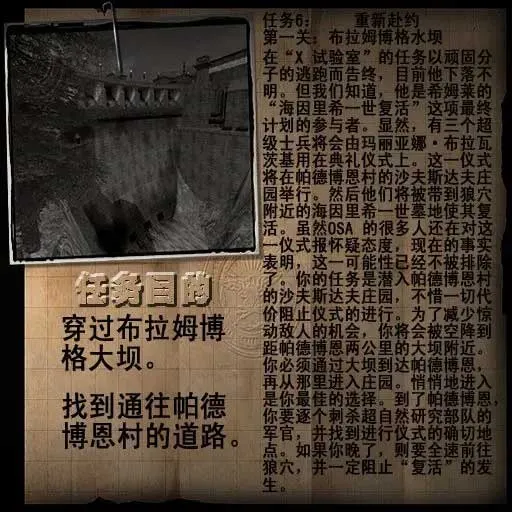 任务6：  重新赴约
第一关：布拉姆博格水坝
在“X 试验室”的任务以顽固分
子的逃跑而告终，目前他下落不
明。但我们知道，他是希姆莱的
“海因里希一世复活”这项最终
计划的参与者。显然，有三个超
级士兵将会由玛丽亚娜·布拉瓦
茨基用在典礼仪式上。这一仪式
将在帕德博恩村的沙夫斯达夫庄
园举行。然后他们将被带到狼穴
附近的海因里希一世墓地使其复
活。虽然OSA 的很多人还在对这
一仪式报怀疑态度，现在的事实
表明，这一可能性已经不被排除
了。你的任务是潜入帕德博恩村
的沙夫斯达夫庄园，不惜一切代
价阻止仪式的进行。为了减少惊
动敌人的机会，你将会被空降到
距帕德博恩两公里的大坝附近。
你必须通过大坝到达帕德博恩，
再从那里进入庄园。悄悄地进入
是你最佳的选择。到了帕德博恩，
你要逐个刺杀超自然研究部队的
军官，并找到进行仪式的确切地
点。如果你晚了，则要全速前往
狼穴，并一定阻止“复活”的发
生。
任务目的
穿过布拉姆博
格大坝。
找到通往帕德
博恩村的道路。